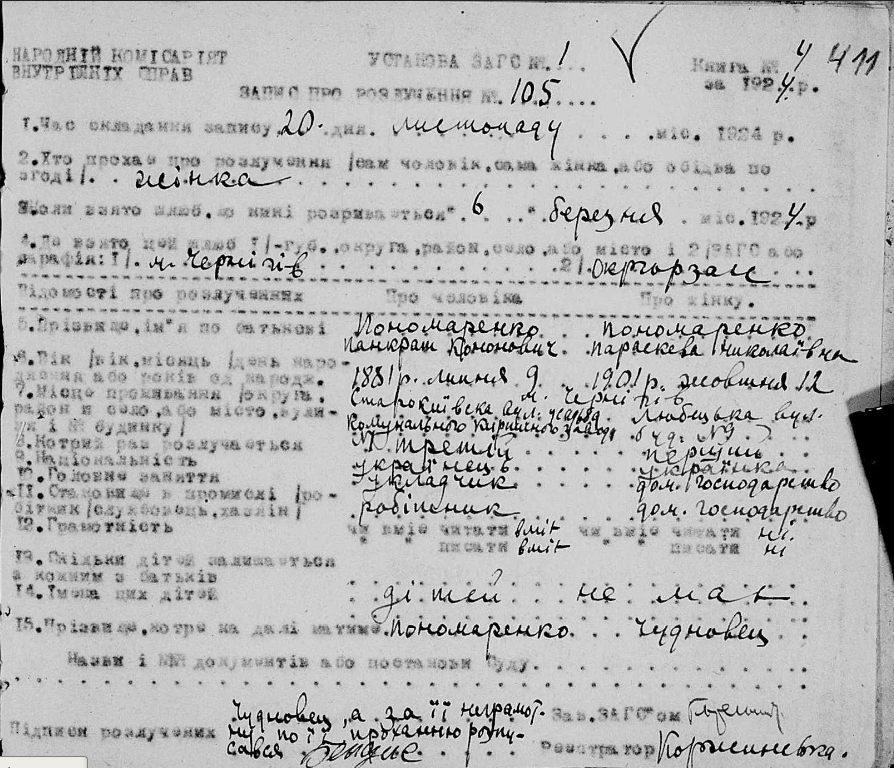 НАРОДНІЙ КОМІСАРІЯТ
ВНУТРІШНІХ СПРАВ
УСТАНОВА ЗАГС №. 1 ...
Книга № 4 411
за 1924.р.
ЗАПИС ПРО РОЗЛУЧЕННЯ №. 105....
1.Час складання запису 20. дня. листопаду .....міс. 1924 р.
2.Хто прохає про розлучення /сам чоловік,сама жінка,або обідва по
згоді/. жінка
3.Коли взято шлюб,що нині розривається". 6 ..". березня . міс.1924.р
4.Де взято цей шлюб 1/-губ.,округа,район,село,або місто і 2/ЗАГС або
парафія:1/. м. Чернігів 2/. Окргорзагс
Відомості про розлученних Про чоловіка Про жінку.
5.Прізвище,ім"я по батькові Пономаренко. пономаренко.
Панкрат Кононович. параскева Николаївна
6.Вік /вік,місяць /день наро-
дження або років од народж. 1881 р. липня 9 1901 р. жовтня 12
7.Місце проживання /округа, м. Чернігів
район и село,або місто,вули- Старокиївска вул. усадьба Любецька вул.
ця і № будинку/ комунального кірпичного заводу буд. №9
8.Котрий раз розлучається третій перший
9.Національність українець українка
10.Головне заняття укладчик дом. господарство
11.Становище в промислі /ро-
бітник/службовець,хазяїн/ робітник дом. господарство
12.Грамотність чи вміє читати вміє чи вміє читати ні.
писати вміє писати ні
13.Скільки дітей залишається
з кожним з батьків
14.Імена цих дітей дітей не має
15.Прізвище,котре на далі матиме. Пономаренко. Чудновец
Назви і №№ документів або постанови Суду.
Чудновец, а за її неграмот-
ні по її проханню розпи-
сався
Підписи розлучених
Зав.ЗАГС"ом
Реєстратор